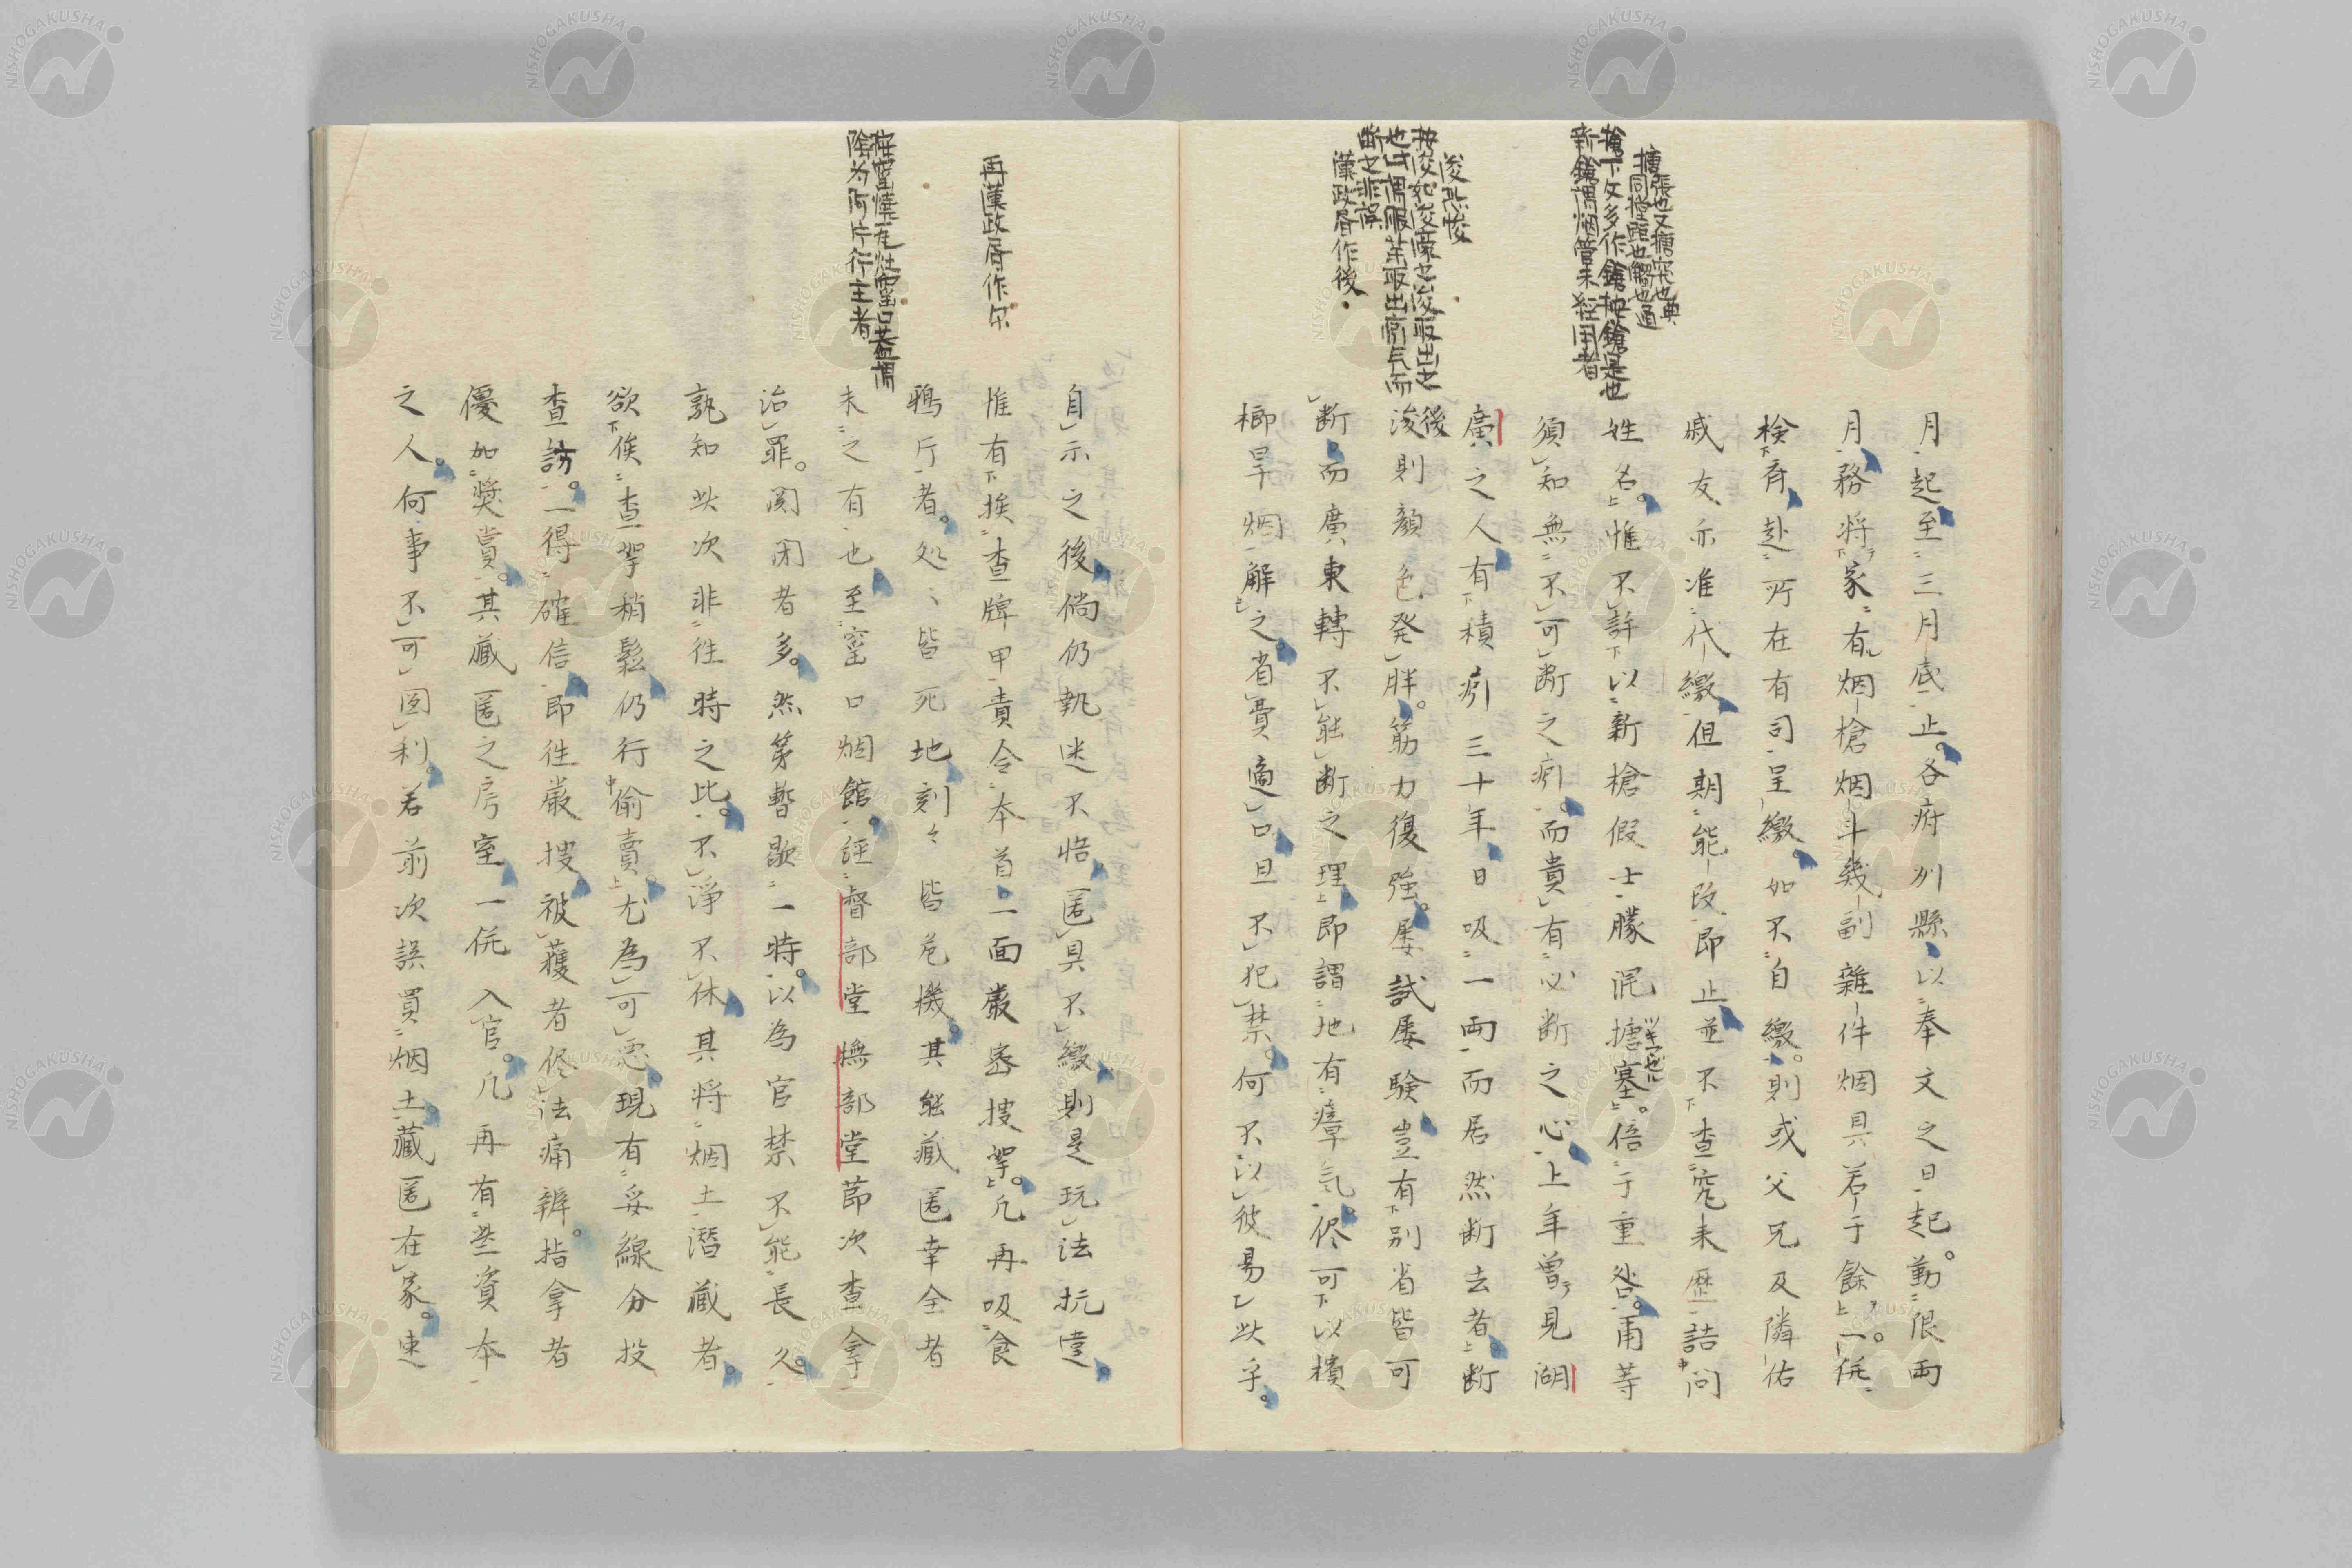 搪張也又搪突也典
搪同㨃距也觸也通
搶下文多作鎗按鎗是也
新鎗謂烟管未経用者
浚恐悛
按浚如浚蒙之浚取出之
也此謂服薬取出瘀気而
断之非誤
漢政眉作後
月起至三月底止各府州縣以奉文之日起勤限兩
月務将家有烟槍烟斗幾副雜件烟具若干餘一併
検斉赴所在有司呈繳如不自繳則或父兄及隣佑
戚友亦准代繳但期能改即止並不査究来歴詰問
姓名惟不許以新槍假土朦混搪塞倍于重咎甫等
須知無不可断之癮而貴有必断之心上年曽見湖
廣之人有積癮三十年日吸一兩而居然断去者断
後
浚則顔色発胖筋力復強屡試屡験豈有別省皆可
断而廣東轉不能断之理即謂地有瘴気侭可以檳
榔旱烟解之省費適口且不犯禁何不以彼易此乎
再漢政眉作尓
按窑燒瓦灶窑口蓋謂
陰为阿片行主者
自示之後倘仍執迷不悟匿具不繳則是玩法抗違
惟有挨査牌甲責令本首一面厳密捜拏凡再吸食
鴉斤者処〻皆死地刻々皆危機其能藏匿幸全者
未之有也至窑口烟館経督部堂撫部堂莭次査拿
治罪関閉者多然第暫歇一時以為官禁不能長久
孰知此次非往時之比不淨不休其将烟土潜藏者
欲俟査拏稍鬆仍行偷賣尤為可悪現有妥線分投
査訪一得確信即往厳捜被獲者侭法痛辦指拿者
優加奨賞其藏匿之房室一併入官凡再有些資本
之人何事不可図利若前次誤買烟土藏匿在家速